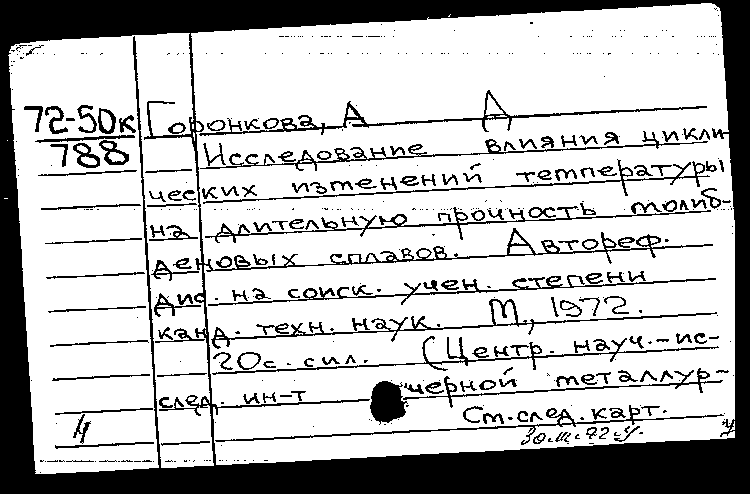 72-50к Горонкова, А Д
788 Исследование влияния цикли
ческих изменений температуры
на длительную прочность молиб-
деновых сплавов. Автореф.
дис. на соиск. учен. степени
канд. техн. наук. М., 1972.
20с. сил. (Центр. науч.-ис-
след. ин-т черной металлур-
4 См.след.карт.